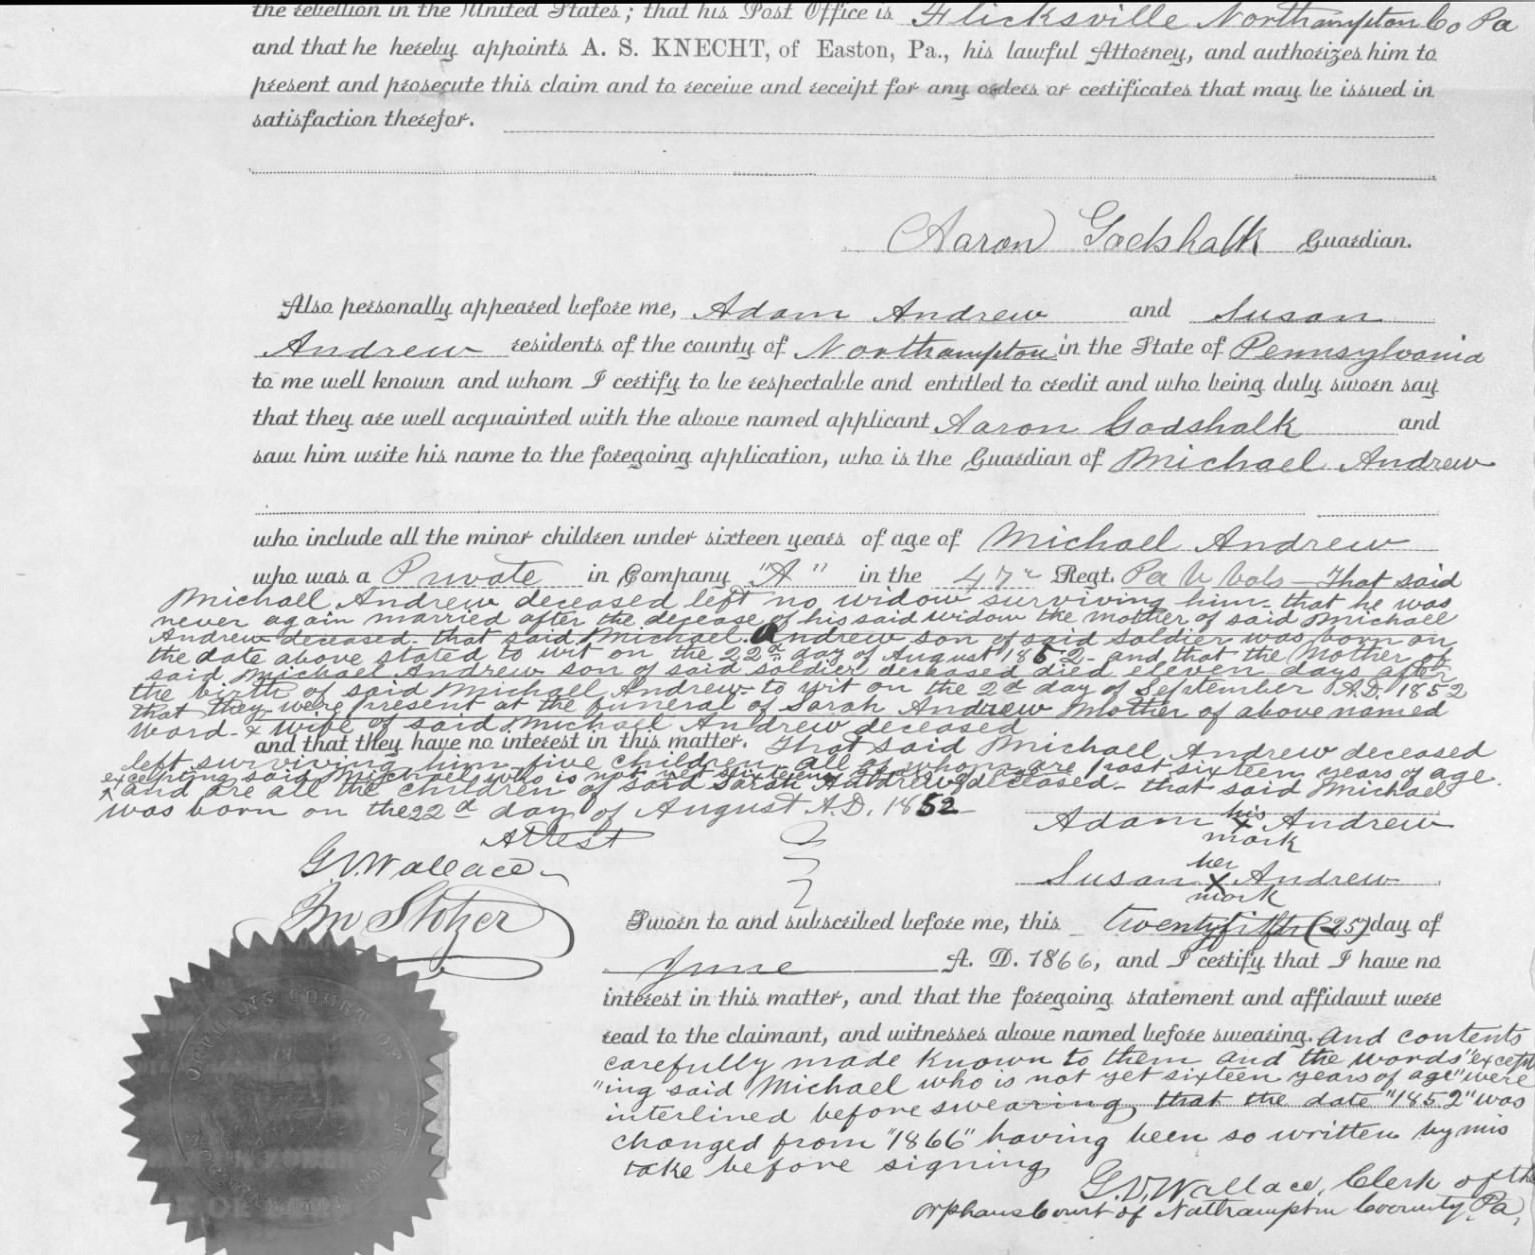 the rebellion in the United States; that his Post Office is Flicksville Northampton Co Pa
and that he hereby appoints A. S. KNECHT, of Easton, Pa., his lawful Attorney, and authorizes him to
present and prosecute this claim and to receive and receipt for any orders or certificates that may be issued in
satisfaction therefor.
Aaron Godshalk Guardian.
Also personally appeared before me, Adam Andrew and Susan
Andrew residents of the county of Northampton in the State of Pennsylvania
to me well known and whom I certify to be respectable and entitled to credit and who being duly sworn say
that they are well acquainted with the above named applicant Aaron Godshalk and
saw him write his name to the foregoing application, who is the Guardian of Michael Andrew
who include all the minor children under sixteen years of age of Michael Andrew
who was a Private in Company "A" in the 47 Regt. Pa V Vols - That said
Michael Andrew deceased left no widow surviving him - that he was
never again married after the decease of his said widow the mother of said Michael
Andrew deceased. that said Michael Andrew son of said soldier was born on
the date above stated to wit on the 22d day of August 1852 - and that the Mother of
said Michael Andrew son of said soldier deceased died eleven days after
the birth of said Michael Andrew - to wit on the 2d day of September A.D. 1852
that they were present at the funeral of Sarah Andrew Mother of above named
ward - & wife of said Michael Andrew deceased
and that they have no interest in this matter. That said Michael Andrew deceased
left surviving him five children, all of whom are past sixteen years of age
excepting said Michael who is not yet sixteen years of age
and are all the children of said Sarah Andrew deceased - that said Michael
was born on the 22d day of August A.D. 1852
Attest
Adam his x mark Andrew
G. V. Wallace
Susan her x mark Andrew
Jno Stotzer
Sworn to and subscribed before me, this twenty fifth (25) day of
June A. D. 1866, and I certify that I have no
interest in this matter, and that the foregoing statement and affidavit were
read to the claimant, and witnesses above named before swearing. And contents
carefully made known to them and the words "except
"ing said Michael who is not yet sixteen years of age" were
interlined before swearing, that the date "1852" was
changed from "1866" having been so written by mis
take before signing
G. V. Wallace, Clerk of the
Orphans Court of Northampton County, Pa,
ORPHANS COURT OF